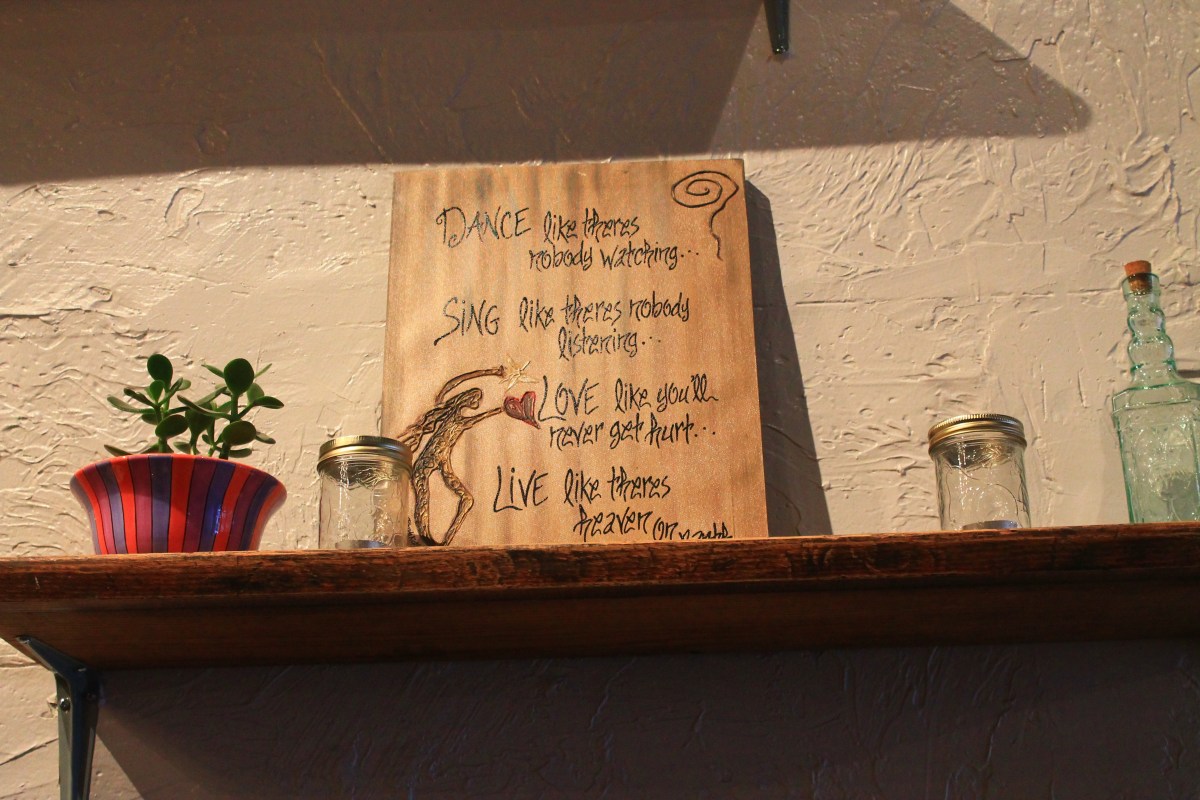 DANCE like theres
nobody watching...
SiNG like theres nobody
listening...
LOVE like you'll
never get hurt...
LiVE like theres
heaven on earth